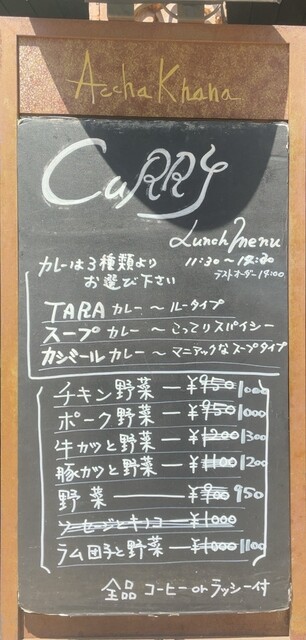 Accha Khana
CURRY
Lunch menu
カレーは3種類より 11:30~14:30
お選び下さい ラストオーダー14:00
TARA カレー ~ ルータイプ
スープ カレー ~ こってりスパイシー
カシミール カレー ~ マニアックなスープタイプ
チキン野菜 ー ¥950 1000
ポーク野菜 ー ¥950 1000
牛カツと野菜 ー ¥1200 1300
豚カツと野菜 ー ¥1100 1200
野菜 ー ¥900 950
ソーセージとキノコ ー ¥1000
ラム団子と野菜 ー ¥1000 1100
全品 コーヒー or ラッシー付